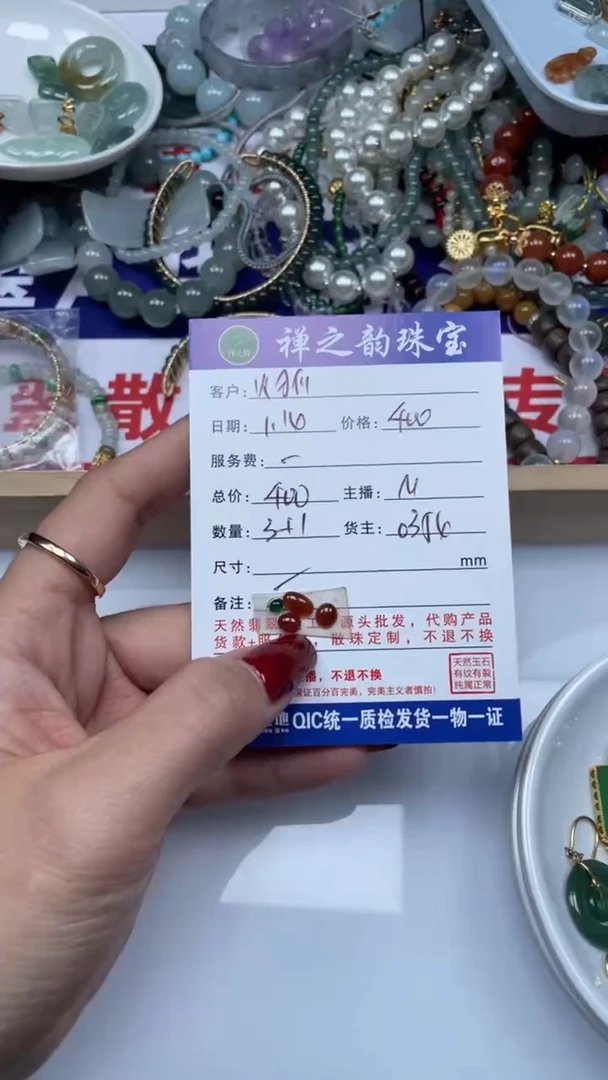 禅之韵珠宝
客户:
日期: 1.16 价格: 400
服务费:
总价: 400 主播: M
数量: 3+1 货主:
尺寸: mm
备注:
天然翡翠 源头批发，代购产品
货款+ 散珠定制，不退不换
播，不退不换
保证百分百完美，完美主义者慎拍!
天然玉石
有纹有裂
纯属正常
地 QIC统一质检发货一物一证
翠 散 专